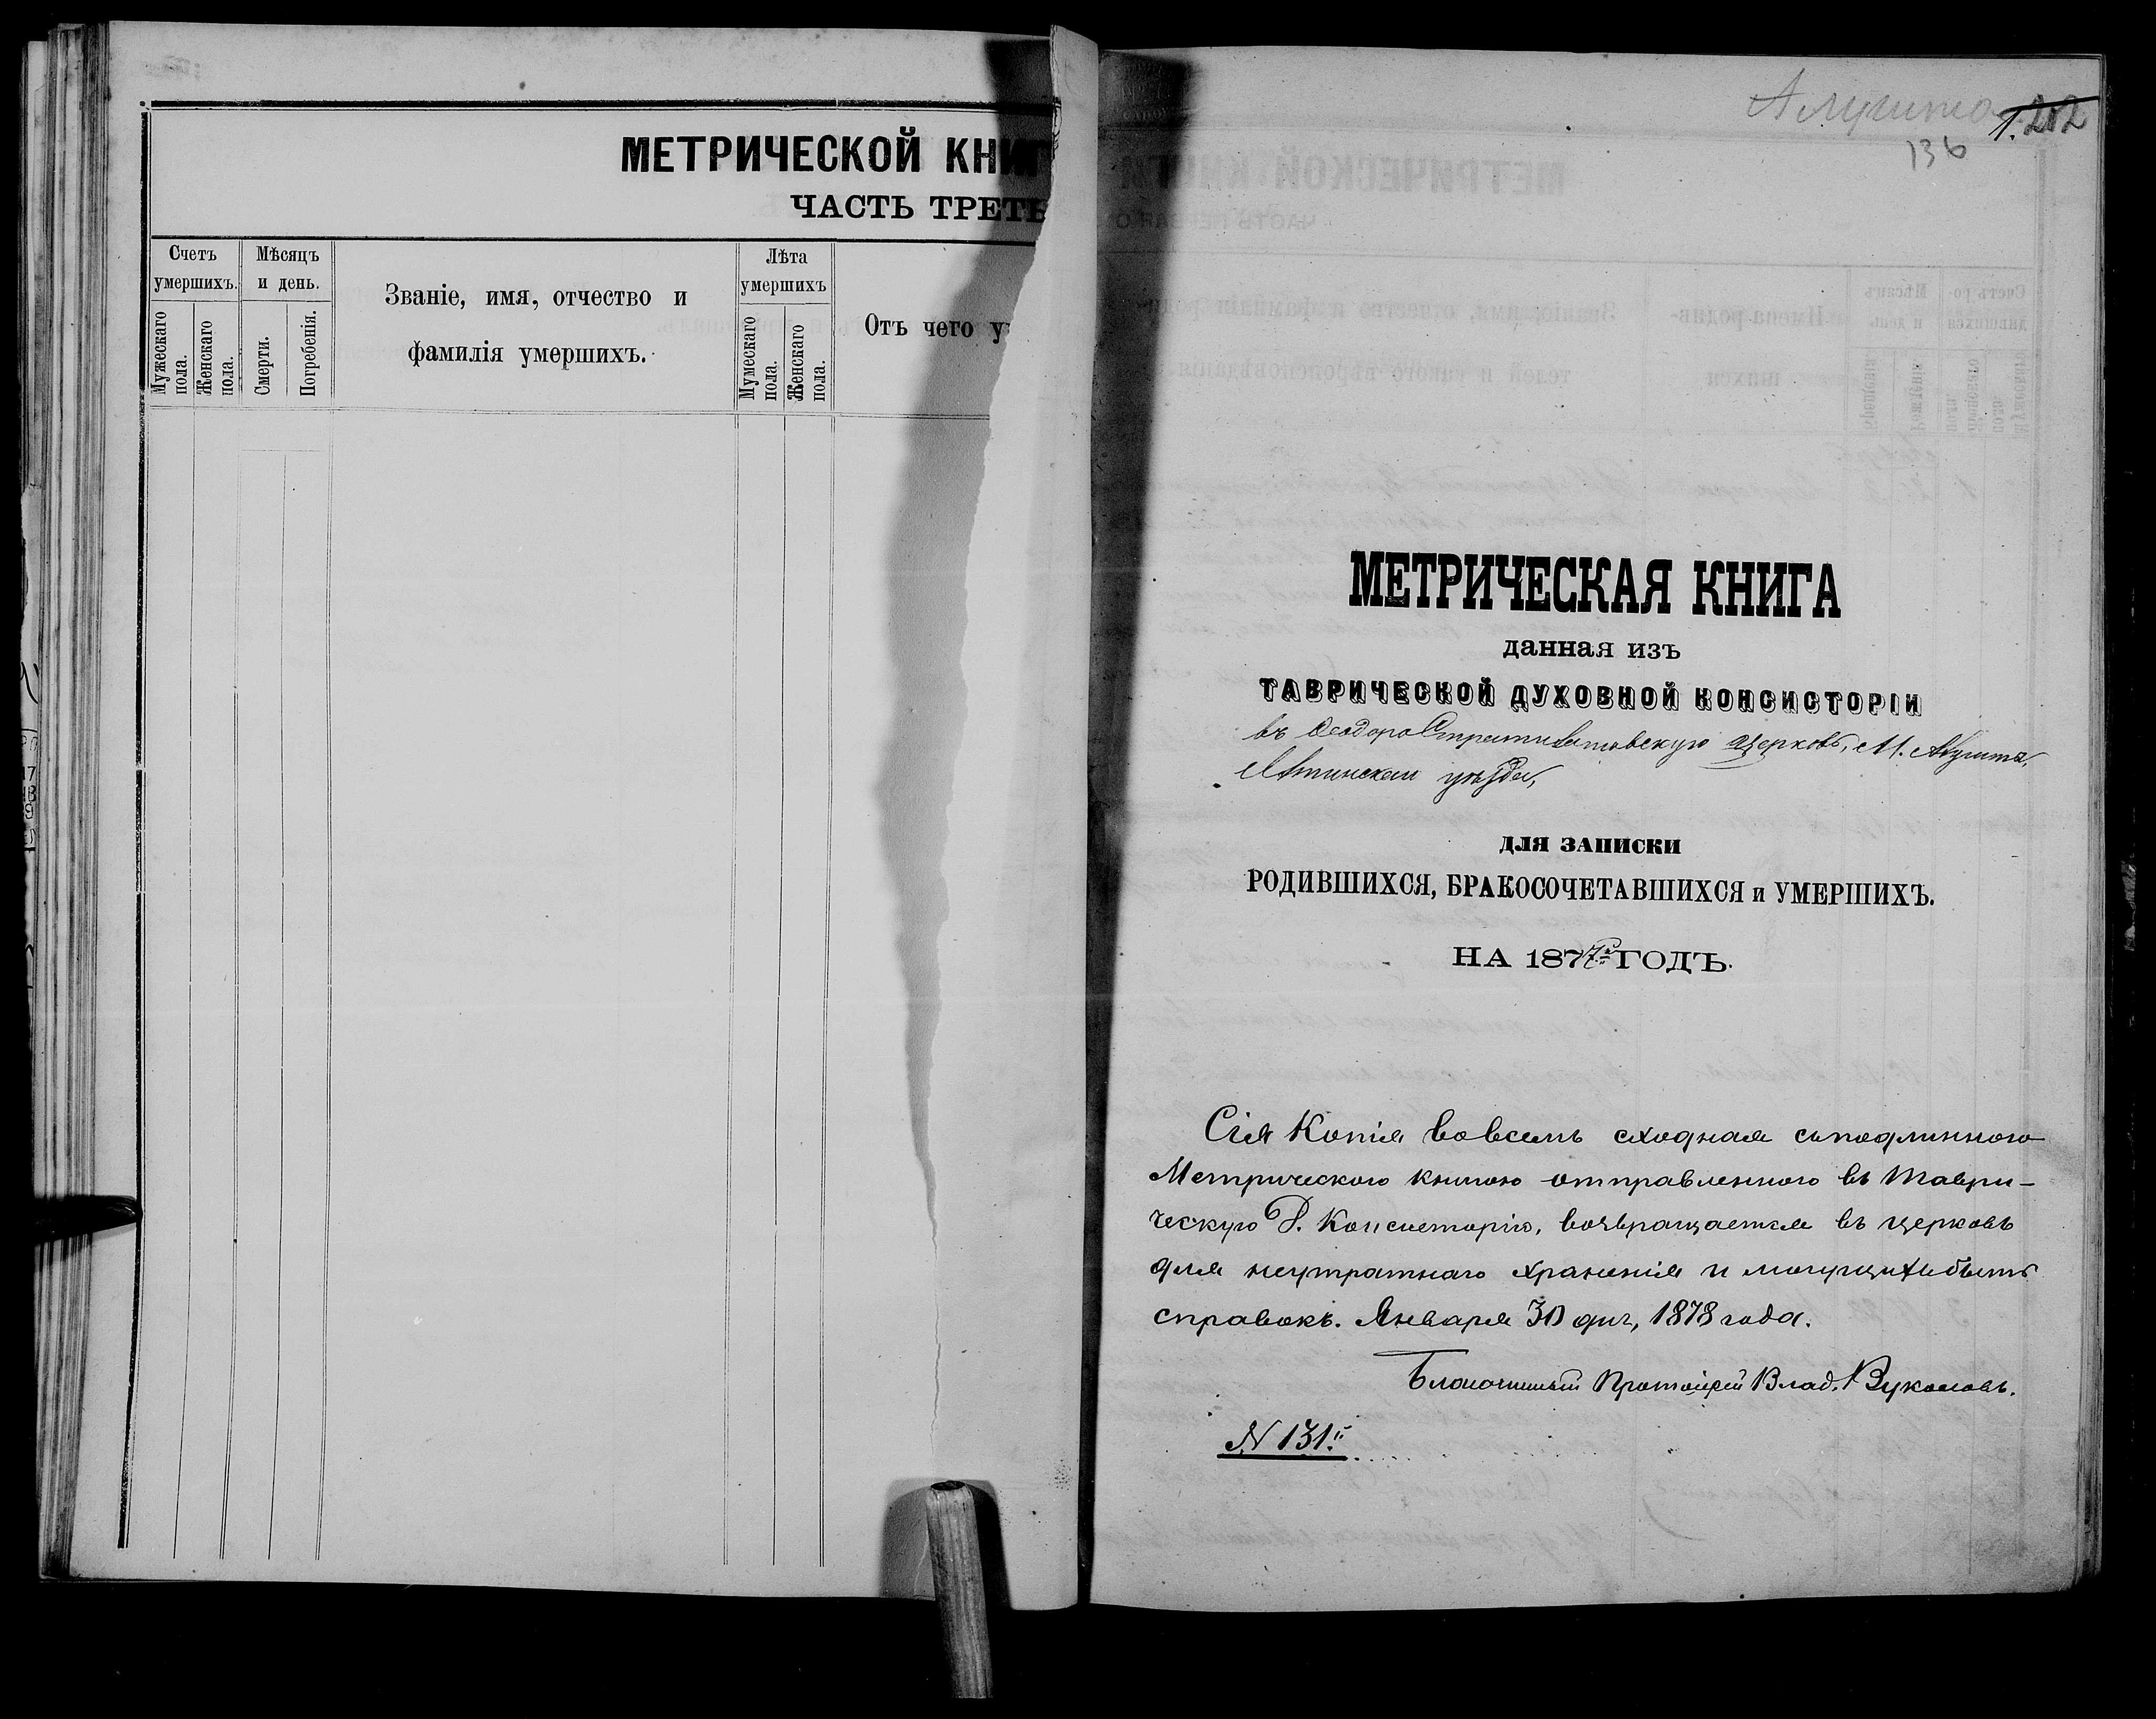 МЕТРИЧЕСКОЙ КНИГ
ЧАСТЬ ТРЕТЬ
Счетъ умершихъ.
Мужескаго пола.
Женскаго пола.
Мѣсяцъ и день.
Смерти.
Погребенія.
Званіе, имя, отчество и
фамилія умершихъ.
Лѣта умершихъ
Мумескаго пола.
Женскаго пола.
Отъ чего у
Алушта
1. 202
136
МЕТРИЧЕСКАЯ КНИГА
данная изъ
ТАВРИЧЕСКОЙ ДУХОВНОЙ КОНСИСТОРІИ
въ ѲеодороСтратилатовскую церковь, М. Алушта,
Ялтинскаго уѣзда,
ДЛЯ ЗАПИСКИ
РОДИВШИХСЯ, БРАКОСОЧЕТАВШИХСЯ и УМЕРШИХЪ.
НА 1877й ГОДЪ.
Сія Копія вовсемъ сходная съподлинною
Метрическою книгою отправленного въ Таври-
ческую Д. Консисторію, возвращается въ церковь
для неутратнаго храненія и могущихъбыть
справокъ. Января 30 дня, 1878 года.
Благочинный Протоіерей Влад. Вуколовъ.
N 131.